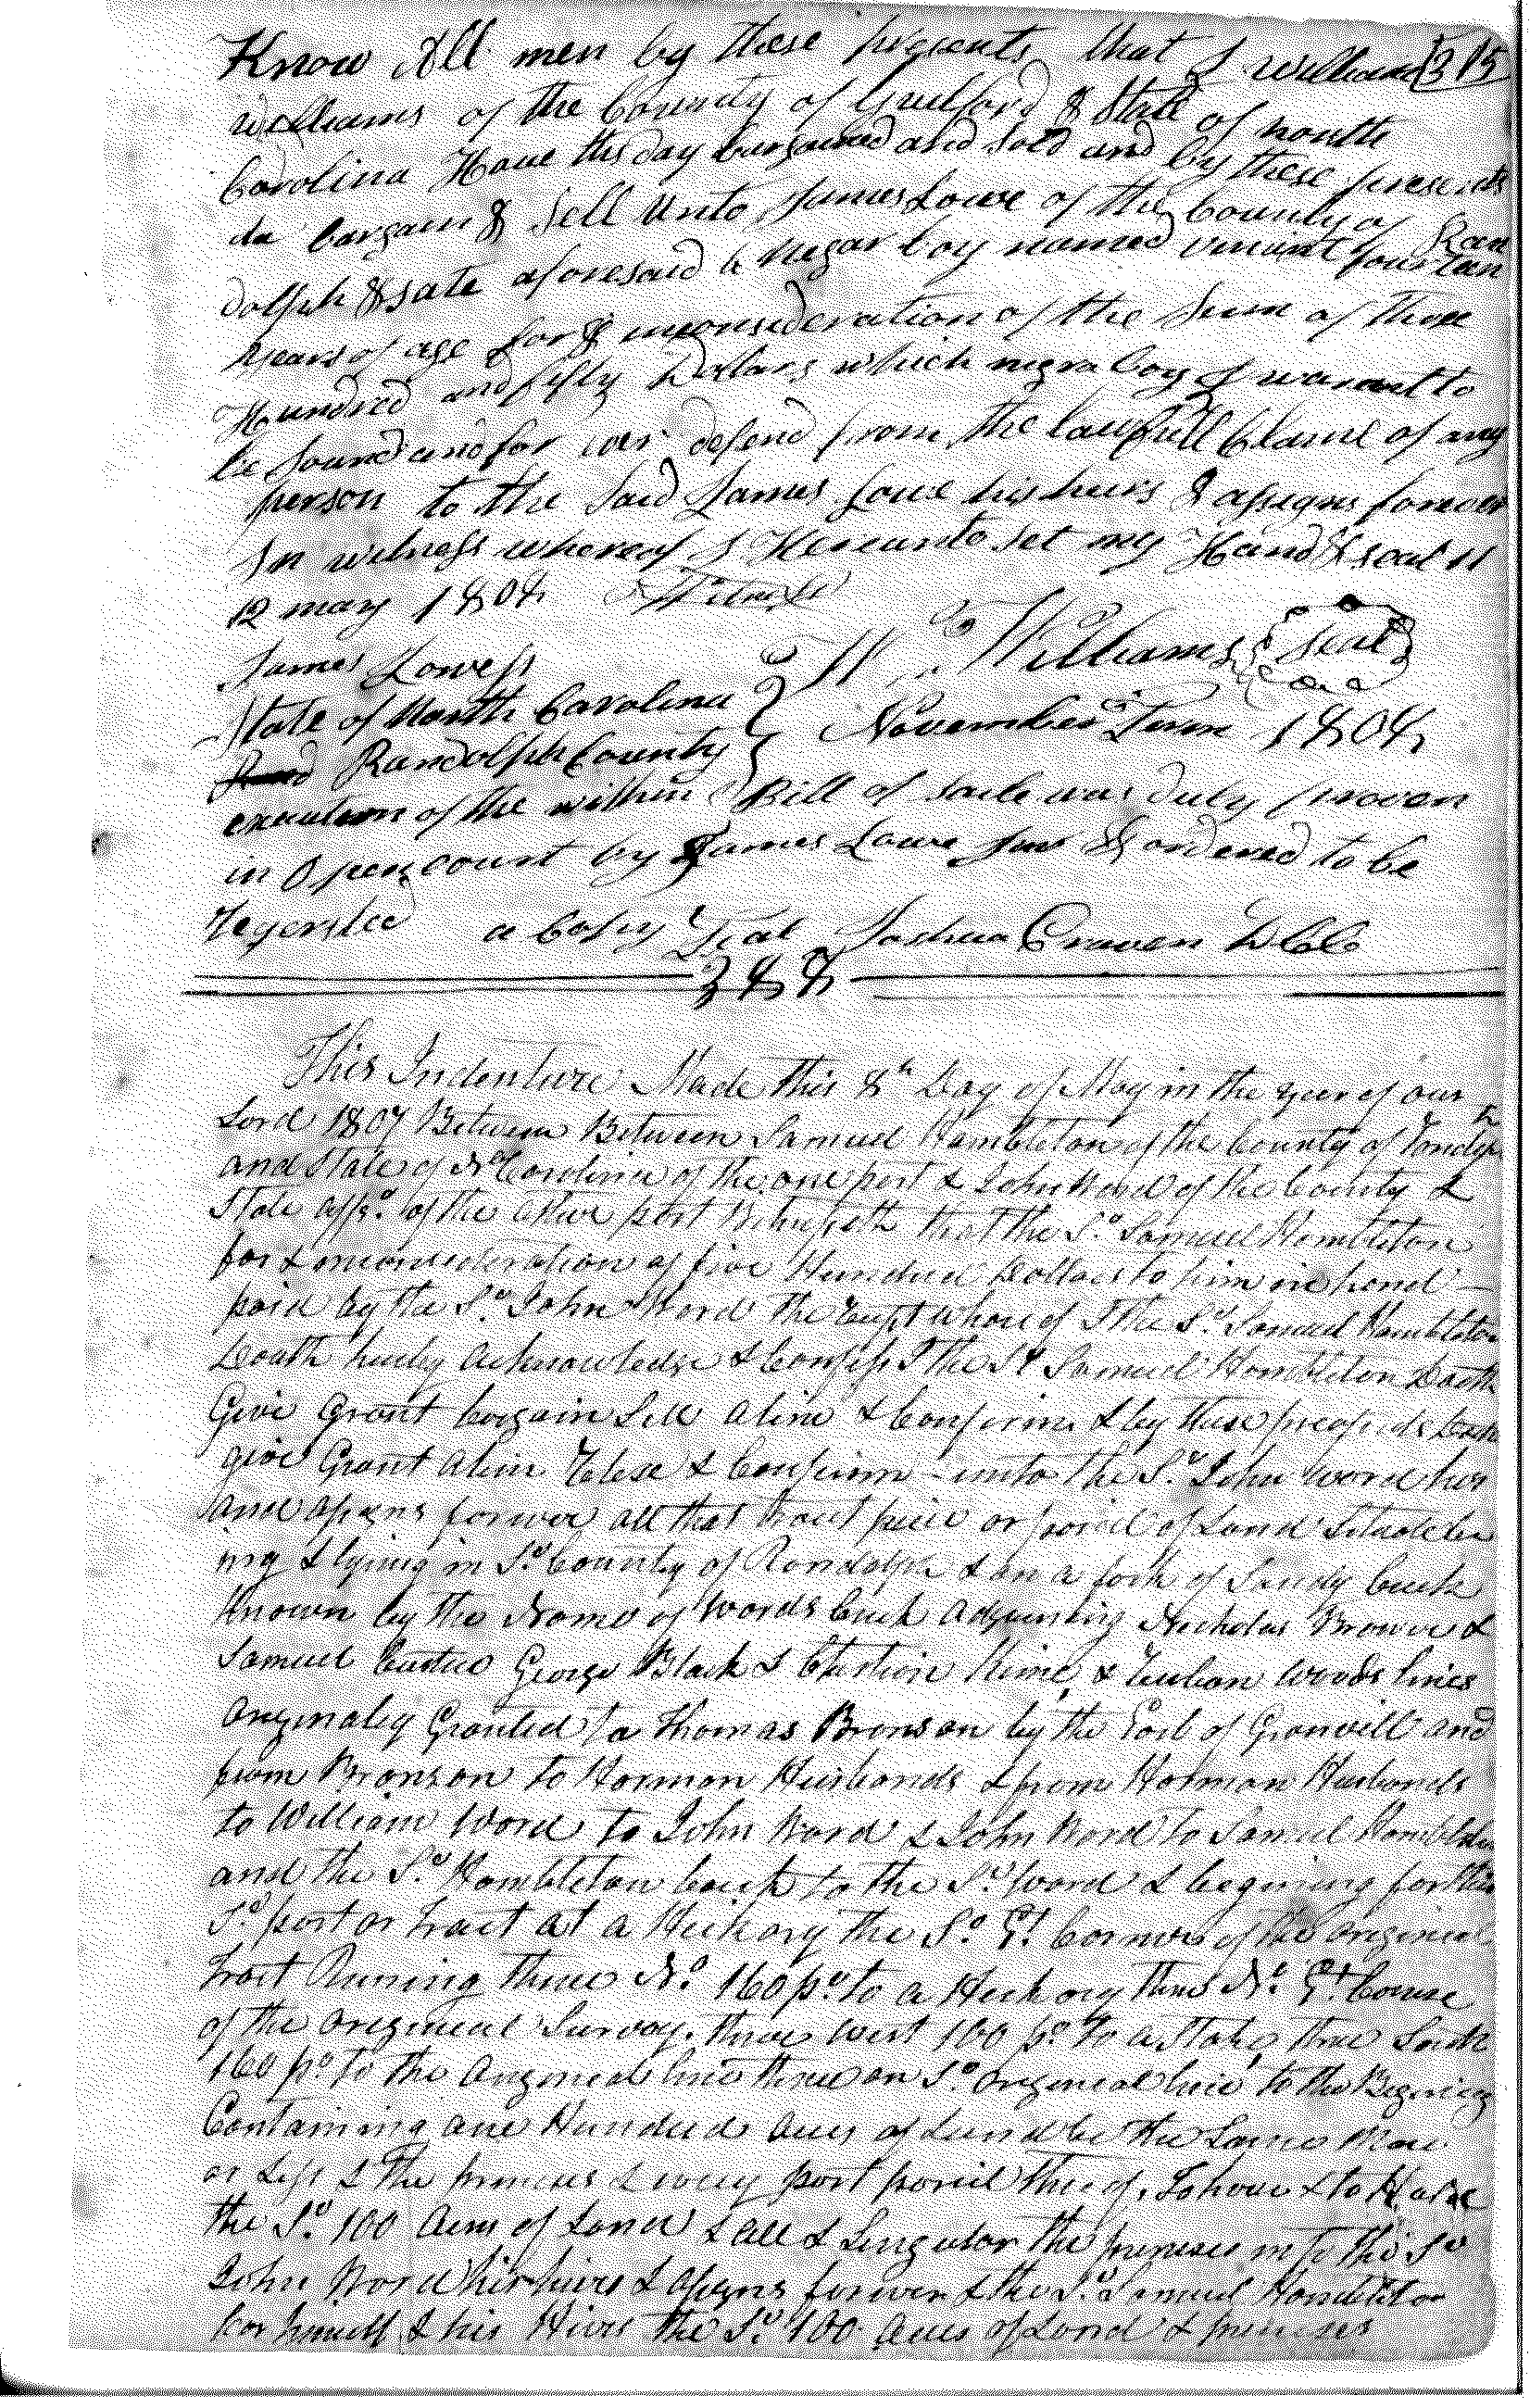 Know All men by these presents that I William 315
Williams of the County of Guilford & State of north
Carolina Have this day bargained and sold and by these presents
do bargain & Sell Unto James Lowe of the County of Ran
dolph & sate aforesaid a negar boy named vincint fourteen
years of age for & inconsideration of the Sum of three
Hundred and fifty Dollars which negra boy I warant to
be sound and for ever defend from the lawfull Claime of any
person to the Said James Lowe his heirs & assigns forever
In witness whereof I Hereunto set my Hand & seal 11
12 may 1808
James Lowe W Williams seal
State of North Carolina
Randolph County November Term 1808
execution of the within Bill of Saile was duly proven
in Open court by James Lowe & ordered to be
Regersted a Copy Test Joshua Craven DCC
388
This Indenture Made this 8th Day of May in the year of our
Lord 1807 Between Between Samuel Hambleton of the County of
and State of No Carolina of the one part & John Word of the County &
State affsd. of the other part Witnesseth that the Sd. Samuel Hambleton
for & inconsideration of five Hundred Dollars to him in hand
paid by the Sd. John Word the whereof I the Sd. Samuel Hambleton
Doath hereby acknowledge & Confess I the Sd Samuel Hambleton Doath
Give Grant bargain Sell Aline & Confirm & by these presents
give Grant Alien Relese & Confirm unto the Sd. John Word his
and assigns forever all that tract piece or parcel of Land Situate be
ing & lying in Sd. County of Randolph & on a fork of Sandy Creek
Known by the Name of Words Creek adjoining Nicholas Brower &
Samuel George Black & Chrstion & woods lines
Originaley Granted to Thomas Bronson by the Earl of Granvill and
from Bronson to Harmon Husbands & from Harmon Husbands
to William Word to John Word & John Word to Samuel Hambleton
and the Sd. Hambleton back to the Sd. Word & begining for this
Sd. part or tract at a Hickory the So. Et. Corner of the original
tract Runing thence No. 160 po. to a Hickory thence No. Et. Corner
of the original Survay. thence west 100 po. to a Stake thence South
160 po. to the original line thence on Sd. original line to the Begining
Containing one Hundred Acres of Land be the Same More
or Less & the primeses & every part parcel thereof. To have & to Have
the Sd. 100 Acres of Land & all & Singular the primeses into the Sd
John Word his hires & assigns forever & the Sd. Samuel Hambleton
for himself & his Hires the Sd. 100 Acres of Land & primeses